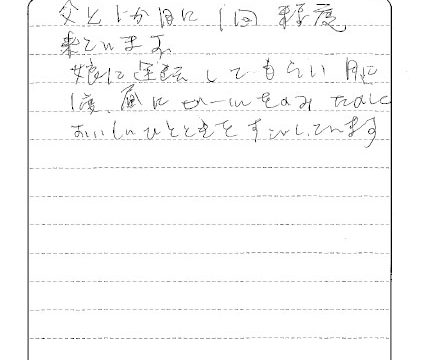 父と1か月に1回程度
来ています。
娘に運転してもらい月に
1度、昼にビールをのみたのしく
おいしいひとときをすごしています